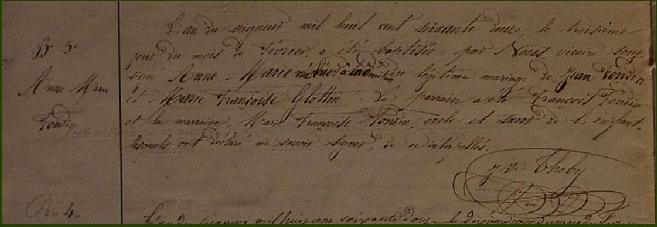 B. 3e
Anne Marie
Tondin
L'an du seigneur mil huit cent soixante douze, le troisième
jour du mois de février, a été baptisée par Nous vicaire sous
signé Anne Marie née hier à légitime mariage de Jean Tondin
et Marie Françoise Glottin. Le parrain a été François Tondin
et la marraine Marie Françoise Tondin, oncle et sœur de l'enfant,
lesquels ont déclaré ne savoir signer, de ce interpellés.
J. M. Thoby
L'an du seigneur mil huit cent soixante douze